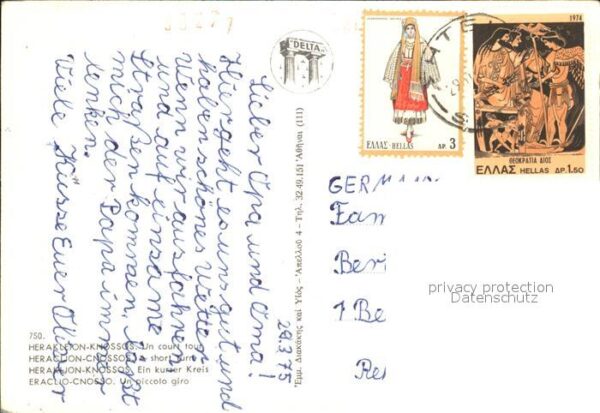 Lieber Opa und Oma!
Hier geht es uns gut und
haben schönes Wetter
Wenn wir ausfahren
und auf einsame
Straßen kommen, läßt
mich der Papa immer
lenken.
Viele Küsse Euer Oliver
29.3.75
DELTA
Εμμ. Διακάκης καί Υἱός - Ἀπελλοῦ 4 - Τηλ. 32.49.151 Ἀθῆναι (111)
750.
HERAKLEION-KNOSSOS. Un court tour
HERACLION-CNOSSOS. A short turn
HERAKLION-KNOSSOS. Ein kurzer Kreis
ERACLIO-CNOSSO. Un piccolo giro
ΕΛΛΑΣ HELLAS ΔΡ. 3
1974
ΘΕΟΚΡΑΤΙΑ ΔΙΟΣ
ΕΛΛΑΣ HELLAS ΔΡ. 1.50
GERM
Fam
Ber
1 Be
Re
privacy protection
Datenschutz